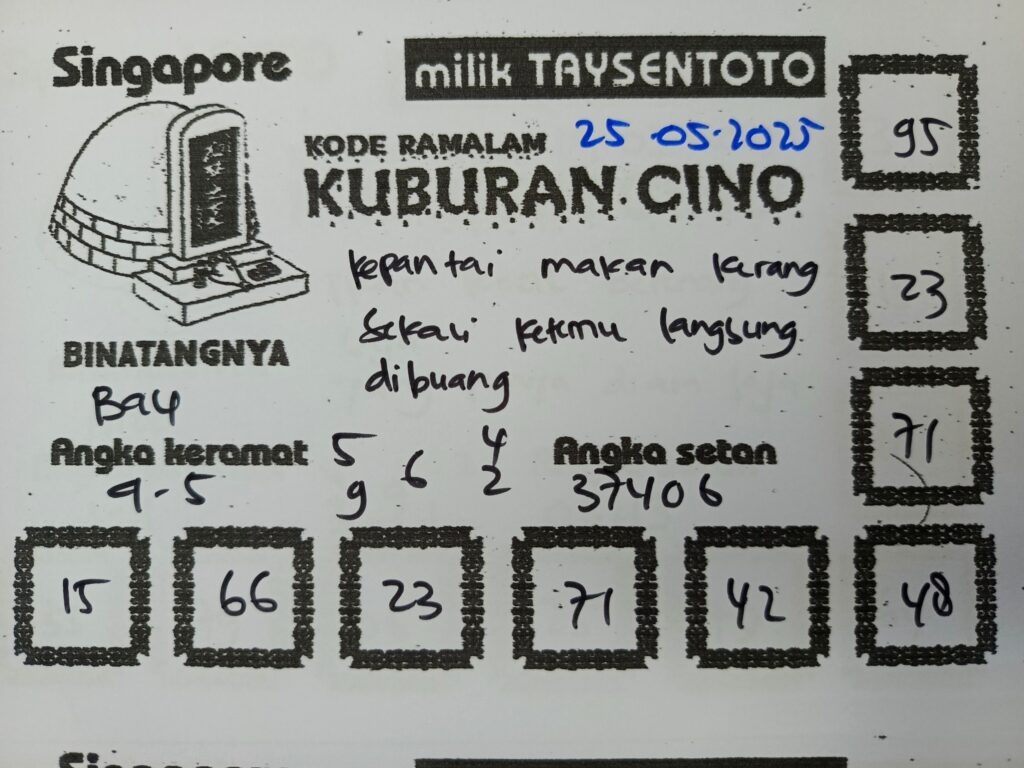 Singapore
milik TAYSENTOTO
KODE RAMALAM 25 05.2025
KUBURAN CINO
95
kepantai makan karang
sekali ketemu langsung
dibuang
23
BINATANGNYA
71
Angka keramat
9-5
5 6 4
9 2
Angka setan
37406
15 66 23 71 42 48